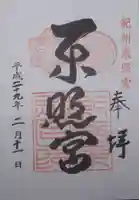 紀州東照宮
奉拝
東照宮
平成二十九年二月十一日